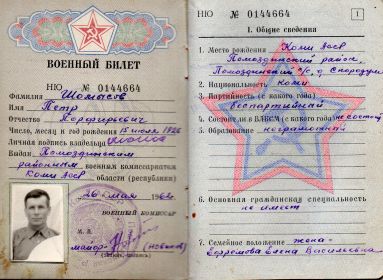 ВОЕННЫЙ БИЛЕТ
НЮ № 0144664
Фамилия Шомысов
Имя Петр
Отчество Порфирьевич
Число, месяц и год рождения 15 июля 1926
Личная подпись владельца
Выдан Помоздинским
районным военным комиссариатом
Коми АССР
области (республики)
26 мая 196
ВОЕННЫЙ КОМИССАР
М. П.
майор
НЮ № 0144664
1
I. Общие сведения
1. Место рождения Коми АССР
Помоздинский район,
Помоздинский с/с, д.
2. Национальность коми
3. Партийность (с какого года)
беспартийный
4. Состоял ли в ВЛКСМ (с какого года) не состоял
5. Образование неграмотный
6. Основная гражданская специальность
не имеет
7. Семейное положение жена-
Ефремова Елена Васильевна